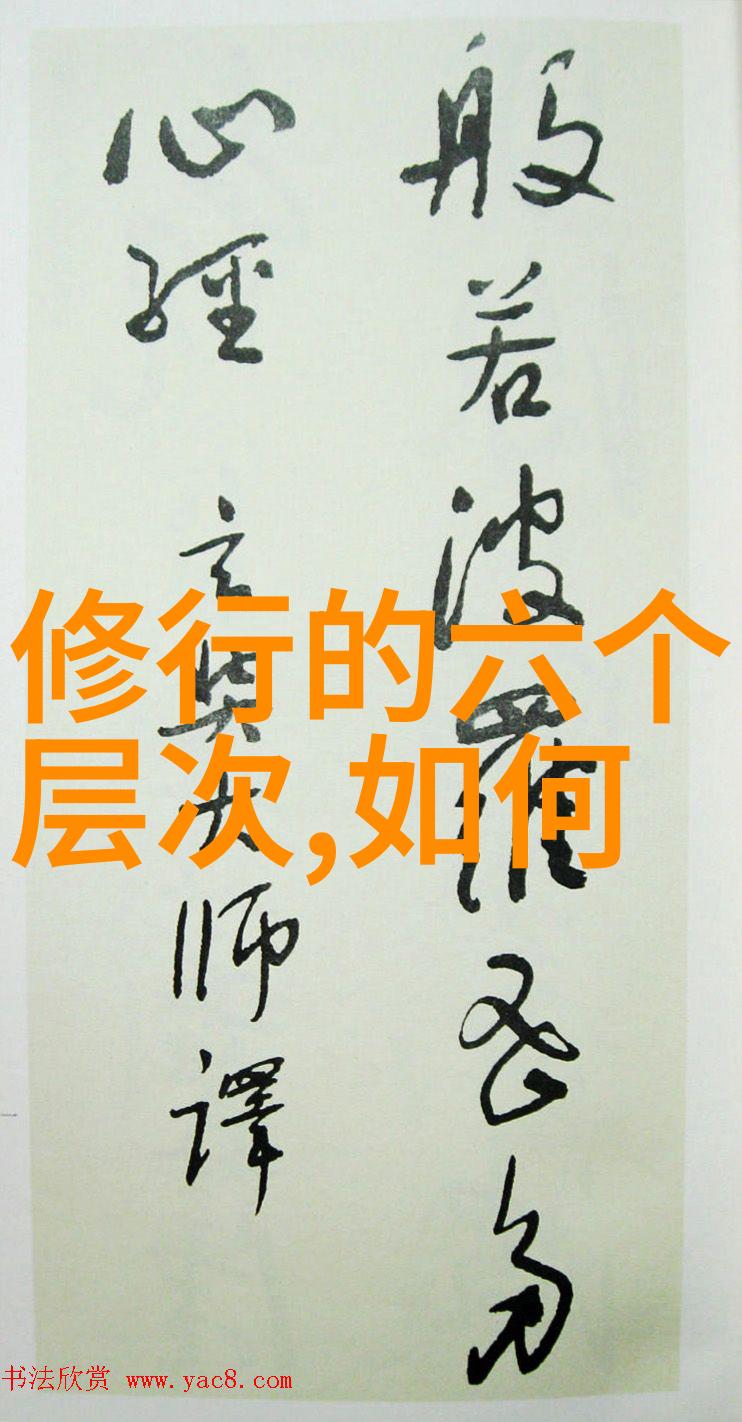 般若波羅密多
心經 玄奘大師譯
修行的六个
层次,如何
书法欣赏 www.yac8.com